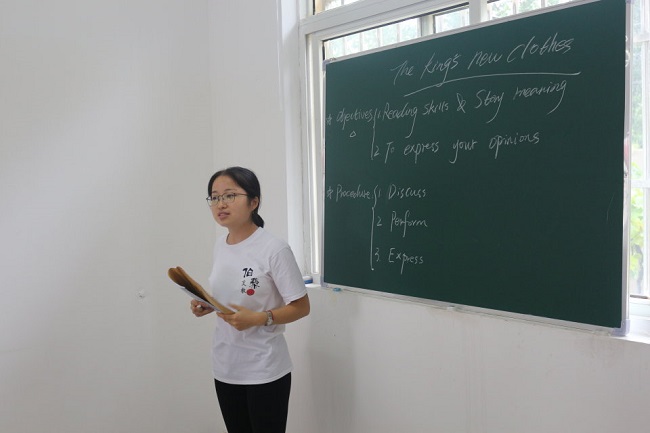 The King's new clothes
☆ Objectives { 1. Reading skills & Story meaning
2. To express your opinions
☆ Procedure { 1 Discuss
2 Perform
3. Express